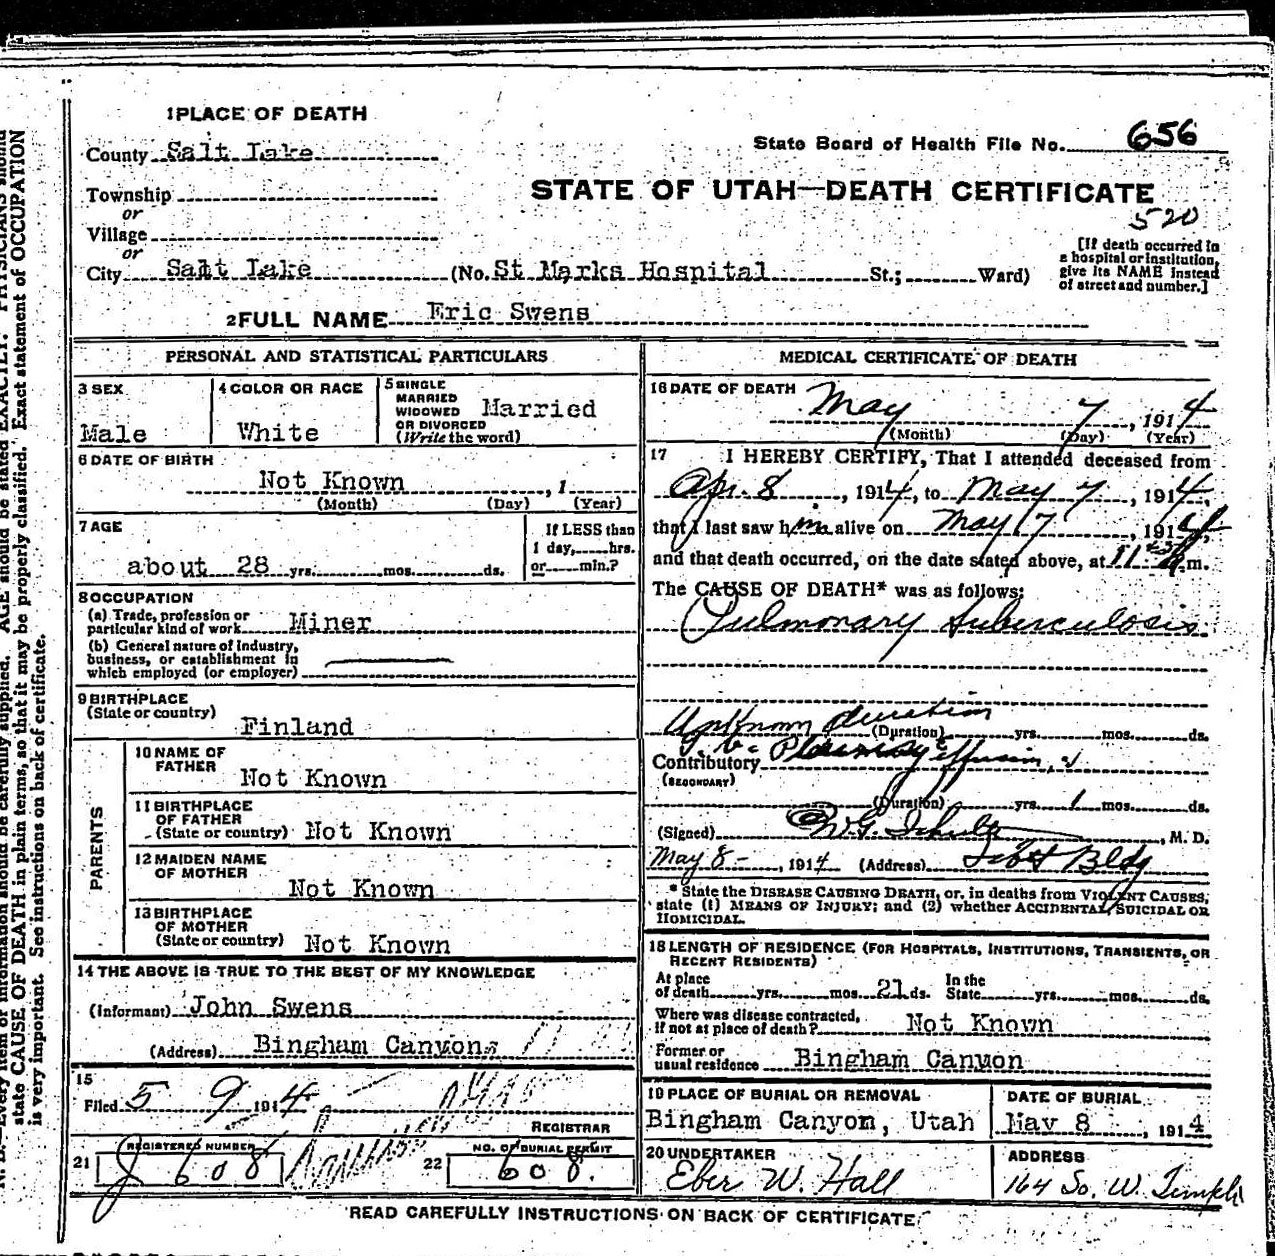 1 PLACE OF DEATH
County Salt Lake
State Board of Health File No. 656
Township
or
Village
or
City Salt Lake (No. St Marks Hospital St.; Ward)
STATE OF UTAH—DEATH CERTIFICATE
520
[If death occurred in
a hospital or institution,
give its NAME instead
of street and number.]
2 FULL NAME Eric Swens
PERSONAL AND STATISTICAL PARTICULARS
3 SEX
Male
4 COLOR OR RACE
White
5 SINGLE
MARRIED
WIDOWED
OR DIVORCED
(Write the word)
Married
6 DATE OF BIRTH
Not Known , 1
(Month) (Day) (Year)
7 AGE
about 28 yrs. mos. ds.
If LESS than
1 day, hrs.
or min.?
8 OCCUPATION
(a) Trade, profession or
particular kind of work Miner
(b) General nature of industry,
business, or establishment in
which employed (or employer)
9 BIRTHPLACE
(State or country)
Finland
PARENTS
10 NAME OF
FATHER
Not Known
11 BIRTHPLACE
OF FATHER
(State or country) Not Known
12 MAIDEN NAME
OF MOTHER
Not Known
13 BIRTHPLACE
OF MOTHER
(State or country) Not Known
14 THE ABOVE IS TRUE TO THE BEST OF MY KNOWLEDGE
(Informant) John Swens
(Address) Bingham Canyon
15
Filed 5 9 1914
REGISTRAR
21 REGISTERED NUMBER
608
22 NO. OF BURIAL PERMIT
608.
MEDICAL CERTIFICATE OF DEATH
16 DATE OF DEATH
May 7, 1914
(Month) (Day) (Year)
17 I HEREBY CERTIFY, That I attended deceased from
Apr. 8, 1914, to May 7, 1914,
that I last saw him alive on May 7, 1914,
and that death occurred, on the date stated above, at 11 m.
The CAUSE OF DEATH* was as follows:
Pulmonary tuberculosis
Unknown duration
(Duration) yrs. mos. ds.
Contributory effusion
(SECONDARY)
(Duration) yrs. 1 mos. ds.
(Signed) W.G. , M. D.
May 8 - , 1914 (Address) Bldg
* State the DISEASE CAUSING DEATH, or, in deaths from VIOLENT CAUSES,
state (1) MEANS OF INJURY; and (2) whether ACCIDENTAL, SUICIDAL OR
HOMICIDAL.
18 LENGTH OF RESIDENCE (FOR HOSPITALS, INSTITUTIONS, TRANSIENTS, OR
RECENT RESIDENTS)
At place
of death yrs. mos. 21 ds.
In the
State yrs. mos. ds.
Where was disease contracted,
if not at place of death? Not Known
Former or
usual residence Bingham Canyon
19 PLACE OF BURIAL OR REMOVAL
Bingham Canyon, Utah
DATE OF BURIAL
May 8, 1914
20 UNDERTAKER
Eber W. Hall
ADDRESS
164 So. W. Temple
READ CAREFULLY INSTRUCTIONS ON BACK OF CERTIFICATE
N. B.—Every item of information should be carefully supplied. AGE should be stated EXACTLY. PHYSICIANS should
state CAUSE OF DEATH in plain terms, so that it may be properly classified. Exact statement of OCCUPATION
is very important. See instructions on back of certificate.